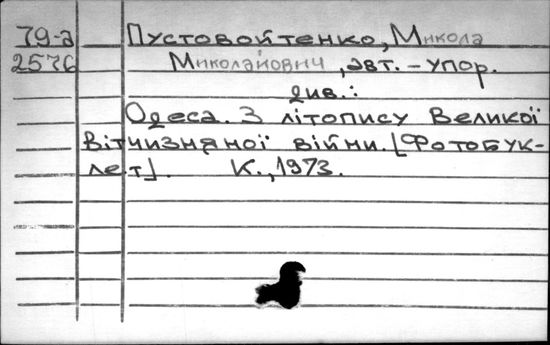 79-а Пустовойтенко, Микола
2576 Миколайович, авт.-упор.
див.:
Одеса. З літопису Великої
Вітчизняної війни. [Фотобук-
лет]. К., 1973.